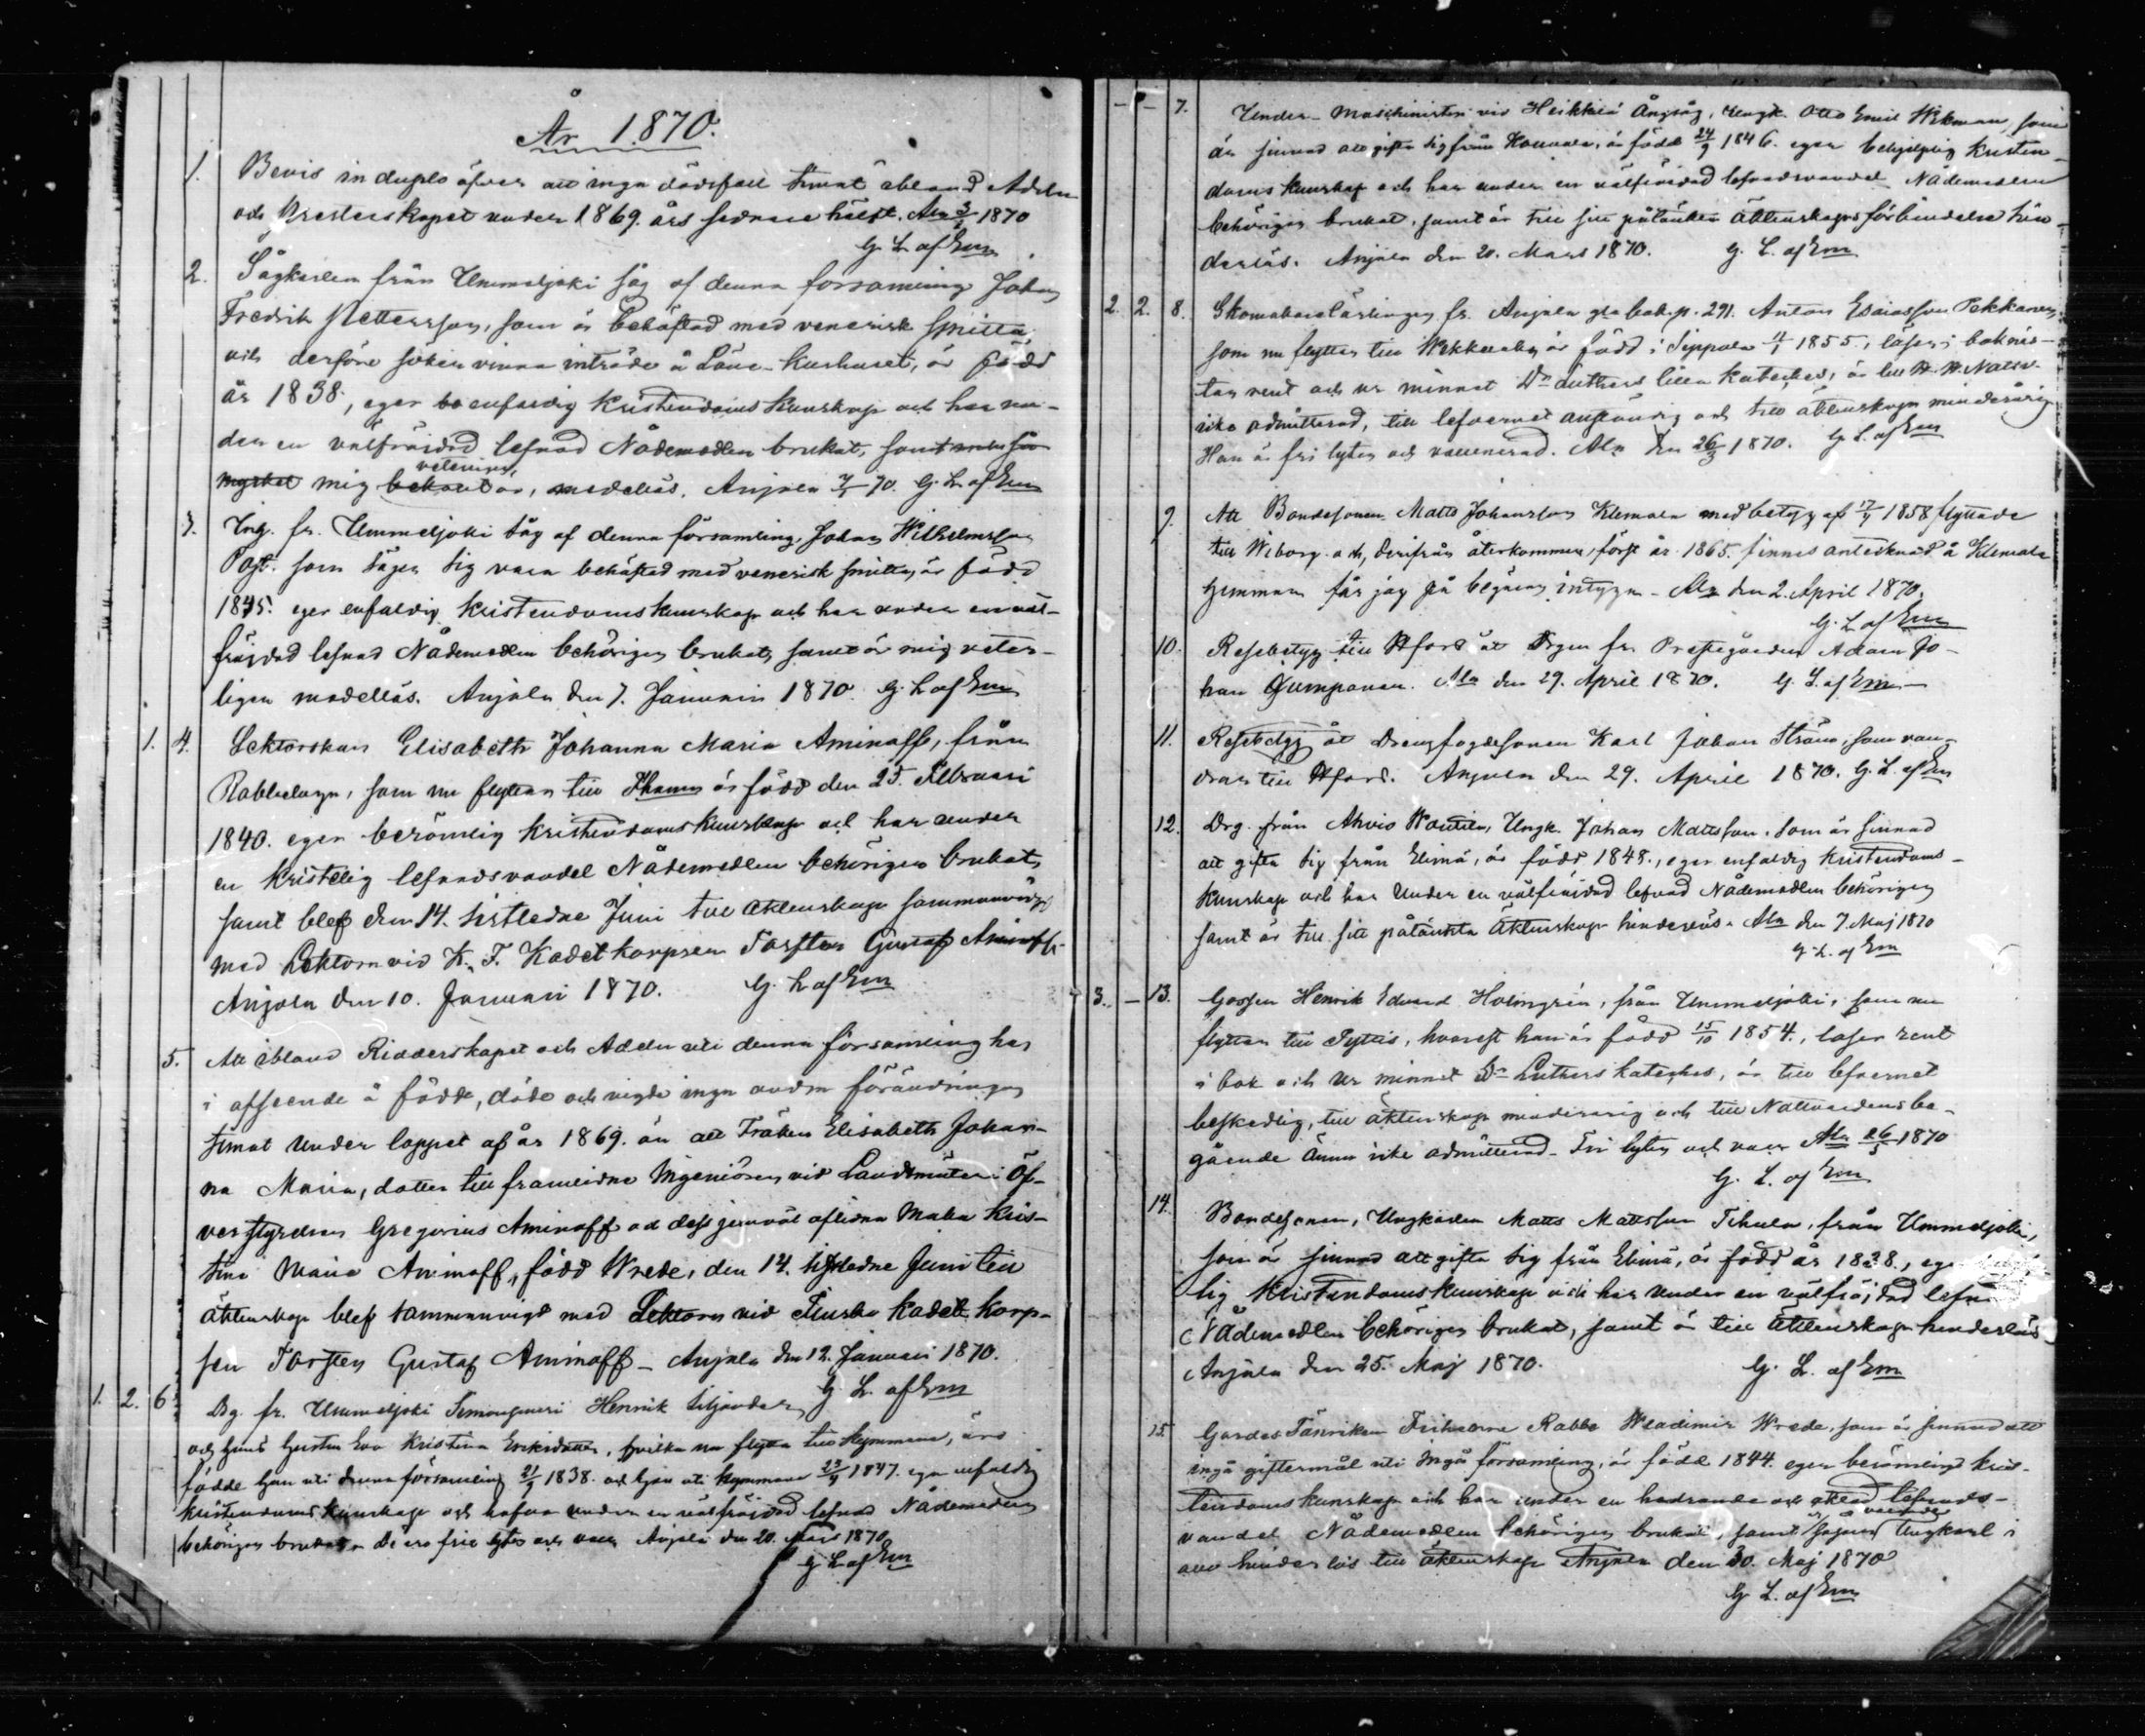 År 1870.
1. Bevis in duplo öfver att inga dödsfall timat ibland Adeln
och Presterskapet under 1869. års sednare hälft. Ala 3/1 1870
G. L. af Em
2. Sågkarlen från Ummeljoki såg af denna församling Johan
Fredrik Pettersson, som är behäftad med venerisk smitta
och derföre söker vinna inträde å Läns-kurhuset, är född
år 1838, eger enfaldig kristendoms kunskap och har un-
der en välfräjdad lefnad Nådemedlen brukat, samt
mig veterligen, medellös. Anjala 7/1 70. G. L. af Em
3. Ung. fr. Ummeljoki såg af denna församling, Johan Wilhelmsson
Post. som säger sig vara behäftad med venerisk smitta, är född
1845. eger enfaldig kristendomskunskap och har under en väl-
fräjdad lefnad Nådemedlen behörigen brukat, samt är mig veter-
ligen medellös. Anjala den 7. Januari 1870 G. L. af Em
1. 4. Lektorskan Elisabeth Johanna Maria Aminoff, från
Rabbelugn, som nu flyttar till Fhamn är född den 25. Februari
1840. eger berömlig kristendomskunskap och har under
en kristelig lefnadsvandel Nådemedlen behörigen brukat,
samt blef den 14. sistledne Juni till äktenskap sammanvigd
med Lektorn vid K. F. Kadettkorpsen Torsten Gustaf Aminoff.
Anjala den 10. Januari 1870. G. L. af Em
5. Att ibland Ridderskapet och Adeln uti denna församling har
i afseende å födde, döde och vigde inga andra förändringar
timat under loppet af år 1869. än att Fröken Elisabeth Johan-
na Maria, dotter till framlidne Ingeniören vid Landtmäteri Öf-
verstyrelsen Gregorius Aminoff och dess jemväl aflidna Maka Kris-
tina Maria Aminoff, född Wrede, den 14. sistledne Juni till
äktenskap blef sammanvigd med Lektorn vid Finska Kadett korp-
sen Torsten Gustaf Aminoff - Anjala den 12. Januari 1870.
G. L. af Em
1. 2. 6. Dg. fr. Ummeljoki Henrik
och hans hustru Eva Kristina Eriksdotter, hvilka nu flytta till Kymmene, äro
födde han uti denna församling 21/9 1838. och hon uti Kymmene 29/9 1847. ega enfaldig
kristendoms kunskap och hafva under en välfräjdad lefnad Nådemedlen
behörigen brukat. De äro frie lyten och vacc. Anjala den 20. Mars 1870
G. L. af Em
- - 7. Under-Maschinisten vid Heikkilä Ångsåg, Ungk. Otto Emil Wikman, som
är sinnad att gifta sig från Kouvala, är född 24/9 1846. eger behjelplig kristen-
doms kunskap och har under en välfräjdad lefnadsvandel Nådemedlen
behörigen brukat, samt är till sitt påtänkta äktenskapsförbindelse hin-
derlös. Anjala den 20. Mars 1870. G. L. af Em
2. 2. 8. Skomakarelärlingen fr. Anjala gla bok p. 291. Anton Esaiasson Pekkanen,
som nu flyttar till är född i Sippola 11/1 1855, läser i bok nös-
tan rent och ur minnet Dr Luthers lilla kateches, är till H. H. Nattv.
icke admitterad, till lefvernet anständig och till äktenskap minderårig
Han är fri lyten och vaccinerad. Ala den 26/3 1870. G. L. af Em
9. Att Bondesonen Matts Johansson Klemola med betyg af 17/4 1858 flyttade
till Wiborg och, derifrån återkommen, först år 1865. finnes antecknad å Klemola
hemman får jag på begäran intyga - Ala den 2. April 1870.
G. L. af Em
10. Resebetyg till Hfors åt Drgen fr. Prestgården Adam Jo-
han Gumpanen. Ala den 29. April 1870. G. L. af Em
11. Resebetyg åt Drengfogdesonen Karl Johan Ström, som van-
drar till Hfors. Anjala den 29. April 1870. G. L. af Em
12. Drg. från Ahvio Wanttila, Ungk. Johan Mattsson, som är sinnad
att gifta sig från Elimä, är född 1848., eger enfaldig kristendoms-
kunskap och har under en välfräjdad lefnad Nådemedlen behörigen
samt är till sitt påtänkta äktenskap hinderlös. Ala den 7. Maj 1870
G. L. af Em
3. - 13. Gossen Henrik Edvard Holmgrén, från Ummeljoki, som nu
flyttar till Pyttis, hvarest han är född 15/10 1854., läser rent
i bok och ur minnet Dr Luthers kateches, är till lefvernet
beskedlig, till äktenskap minderårig och till Nattvardens be-
gående ännu icke admitterad. Fri lyten och vacc. Ala 26/5 1870
G. L. af Em
14. Bondesonen, Ungkarlen Matts Mattsson Tihula, från Ummeljoki,
som är sinnad att gifta sig från Elimä, är född år 1838., eger
lig kristendomskunskap och har under en välfräjdad lefnad
Nådemedlen behörigen brukat, samt är till äktenskap hinderlös
Anjala den 25. Maj 1870. G. L. af Em
15. Gardes Fänriken Friherre Rabbe Wladimir Wrede, som är sinnad att
ingå giftermål uti Ingå församling, är född 1844. eger berömlig kris-
tendoms kunskap och har under en hedrande och lefnads-
vandel Nådemedlen behörigen brukat, samt Ungkarl i
allo hinderlös till äktenskap Anjala den 30. Maj 1870
G. L. af Em